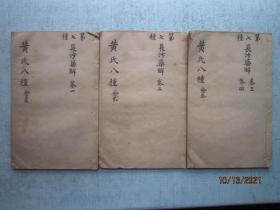 第七種
長沙藥解 卷一
黄氏八種
第七種
長沙藥解 卷二
黄氏八種
第七種
長沙藥解 卷三 卷四
黄氏八種
10/13/2021